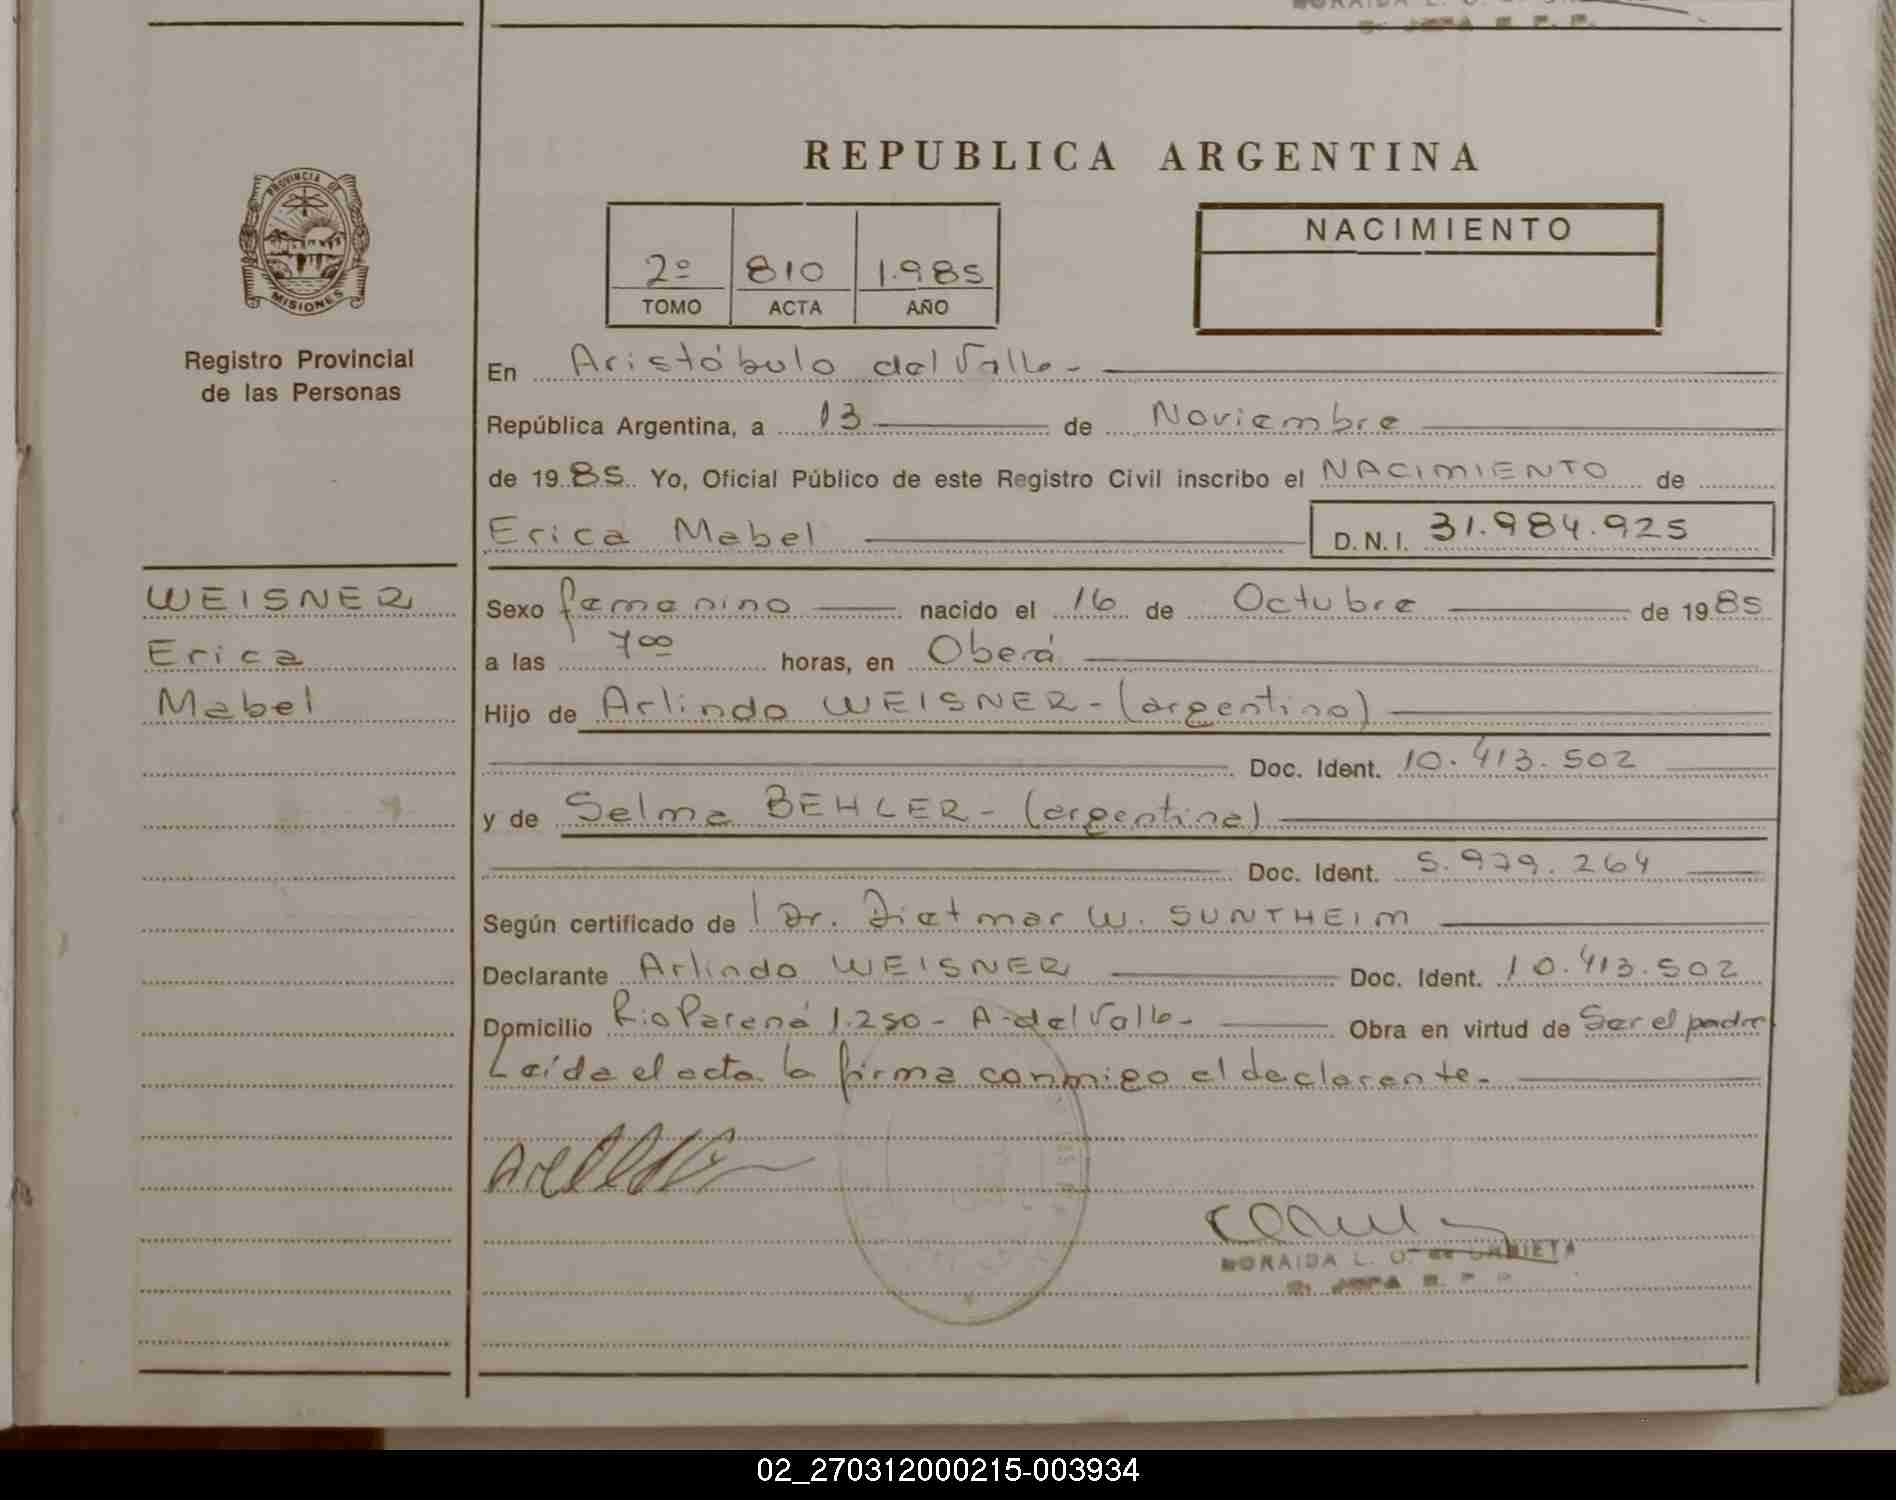 REPUBLICA ARGENTINA
PROVINCIA DE
MISIONES
Registro Provincial
de las Personas
2º 810 1.985
TOMO ACTA AÑO
NACIMIENTO
En Aristóbulo del Valle-
República Argentina, a 13 de Noviembre
de 1985 Yo, Oficial Público de este Registro Civil inscribo el NACIMIENTO de
Erica Mabel D.N.I. 31.984.925
WEISNER
Erica
Mabel
Sexo femenino nacido el 16 de Octubre de 1985
a las 7 00 horas, en Oberá
Hijo de Arlindo WEISNER - (argentino)
Doc. Ident. 10.413.502
y de Selma BEHLER - (argentina)
Doc. Ident. 5.979.264
Según certificado de Dr. Dietmar W. SUNTHEIM
Declarante Arlindo WEISNER Doc. Ident. 10.413.502
Domicilio Rio Paraná 1.250 - A. del Valle- Obra en virtud de Ser el padre
Leída el acta la firma conmigo el declarante.-
NORAIDA L. O. de
JEFA
02_270312000215-003934